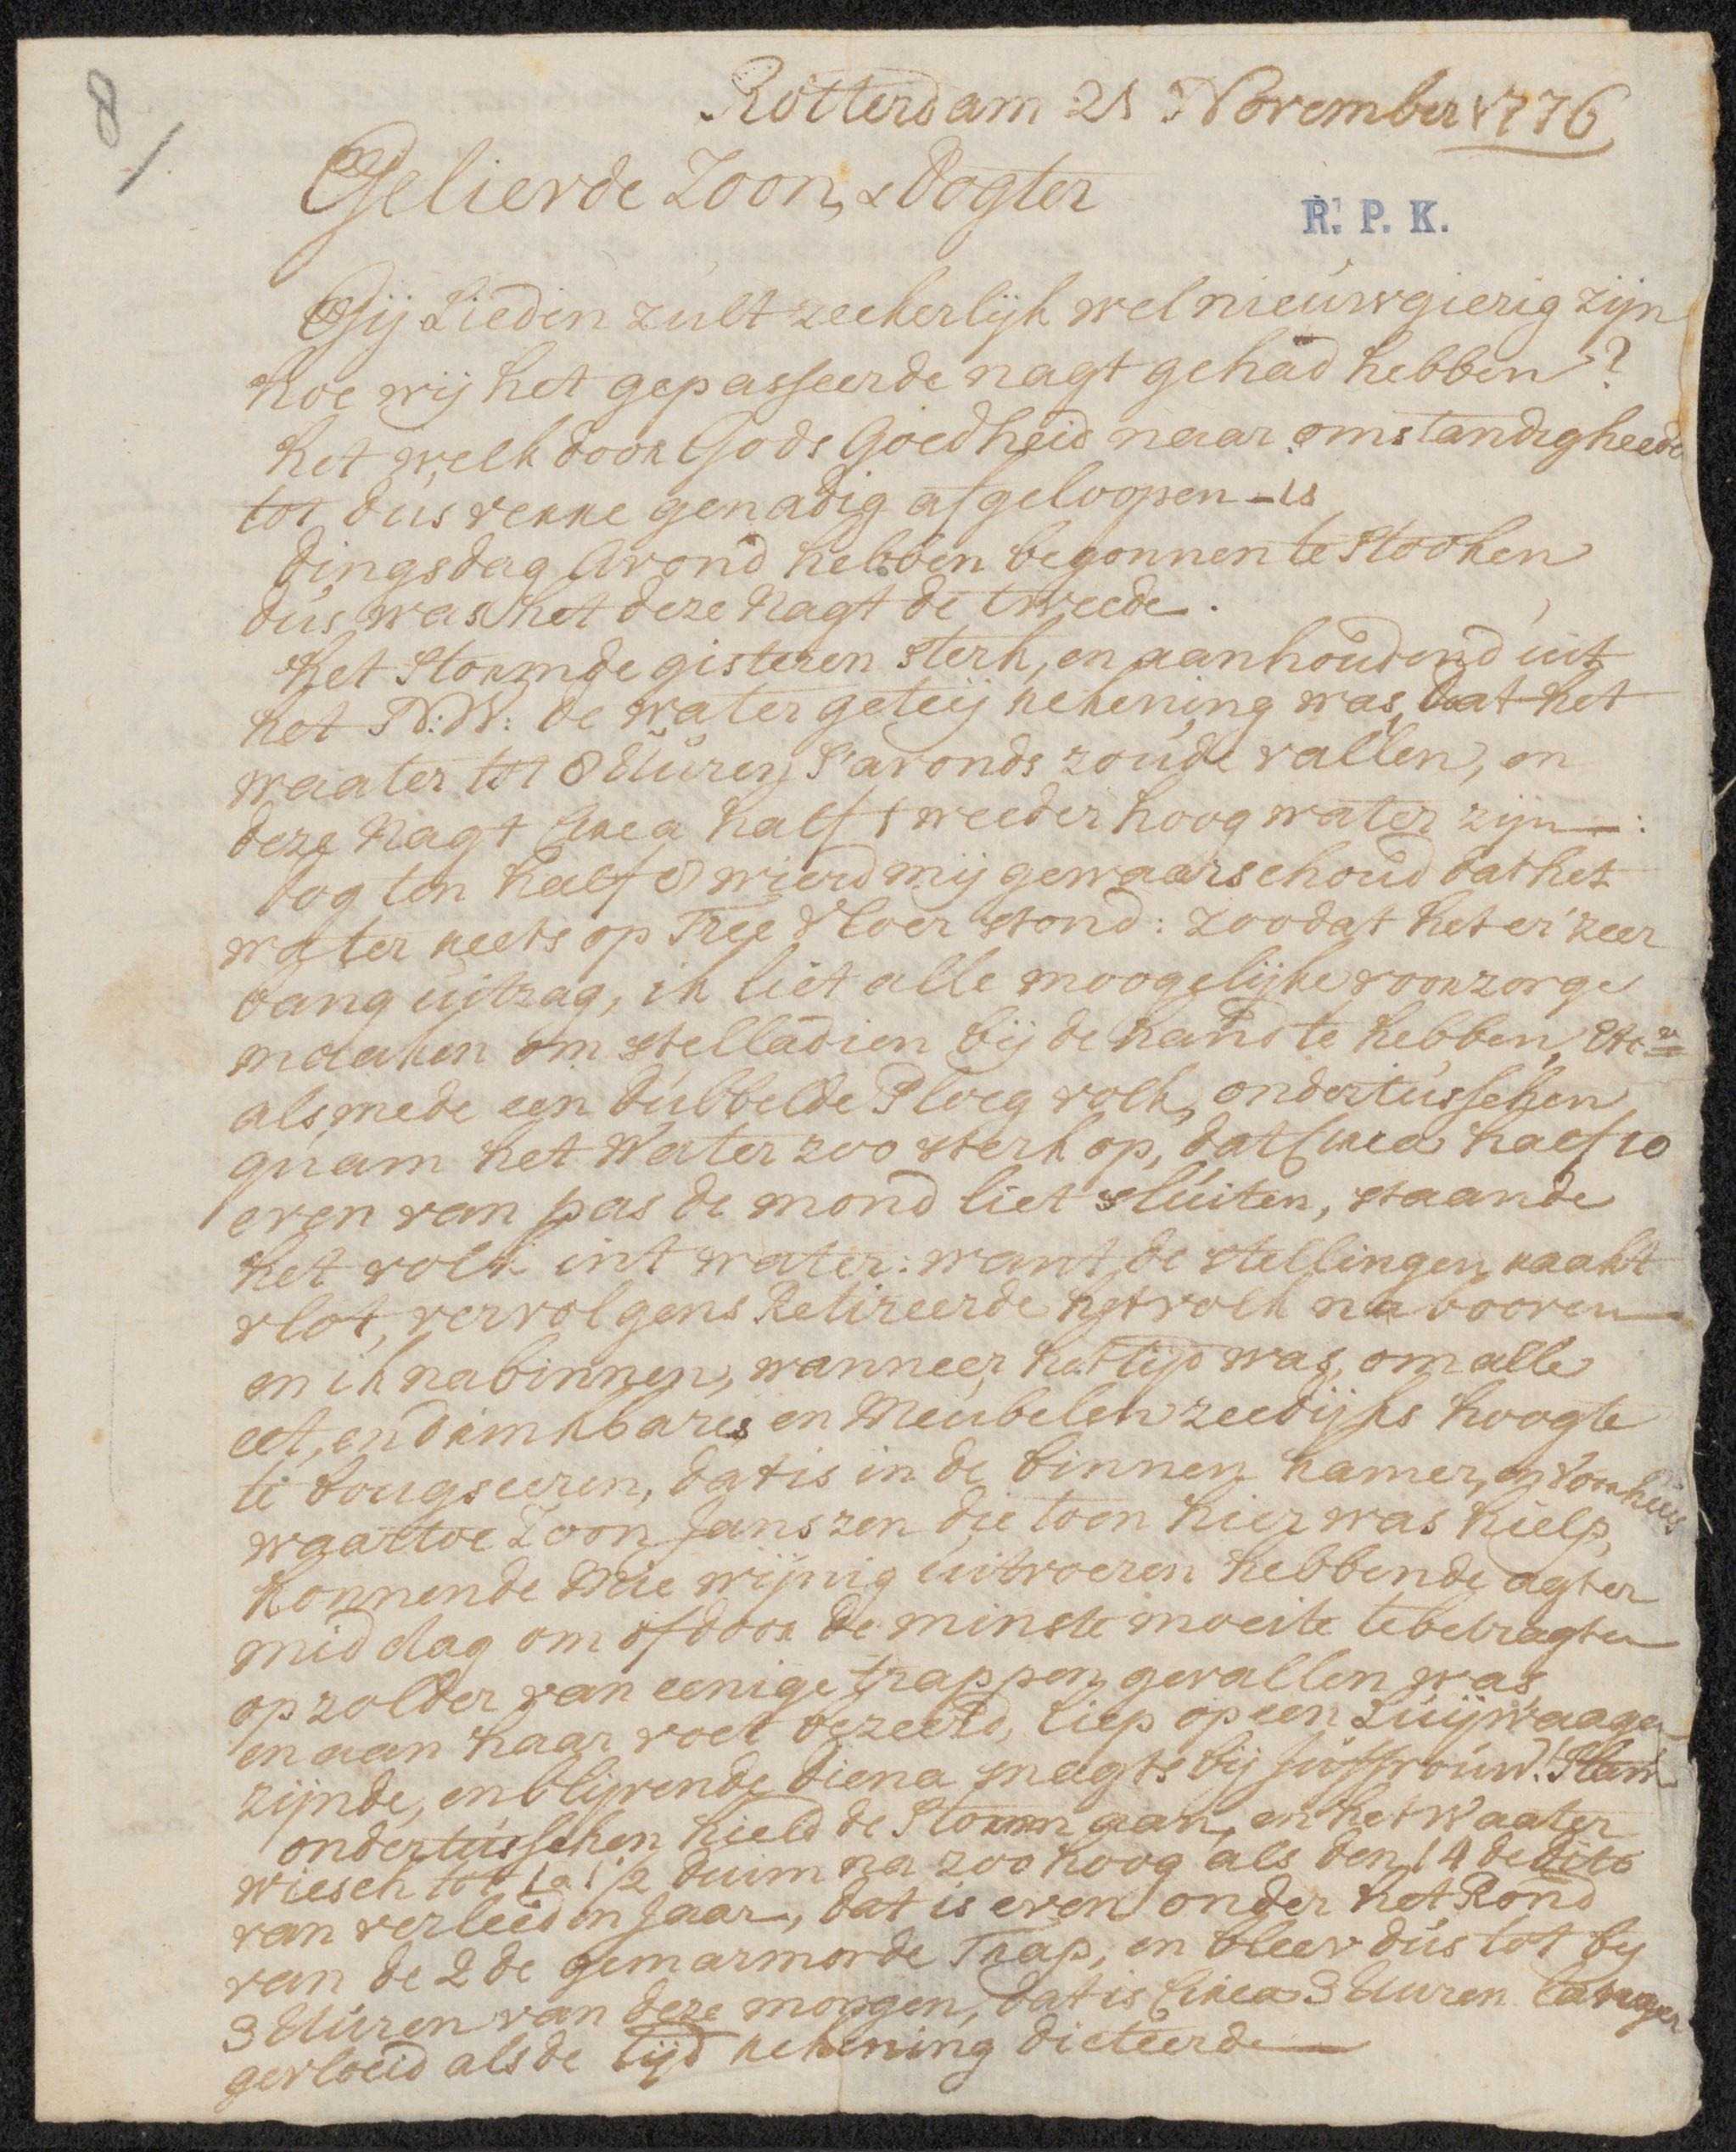 8/
Rotterdam 21 November 1776
Gelievde Zoon, & Dogter
R. P. K.
Gij Lieden zult zeekerlijk wel nieuwgierig zijn
hoe wij het gepasseerde nagt gehad hebben?
het welk door Gods Goedheid naar omstandigheede
tot dus verre genadig afgeloopen – is
Dingsdag Avond hebben begonnen te Stooken
dus was het deze Nagt de tweede.
het Stormde gisteren Sterk, en aanhoudend uit
het N:W: de water geteij rekening was, dat het
waater tot 8 Uuren S'avonds zoude vallen, en
deze Nagt Circa half 1 weeder hoog water zijn —:
dog ten half 8 wierd mij gewaarschoud dat het
water reets op Tree Vloer stond: zoodat het er zeer
bang uitzag, ik liet alle moogelijke voorzorge
maaken om stelladien bij de hand te hebben, Etc.
alsmede een dubbelde Ploeg volk, ondertusschen
quam het Water zoo sterk op, dat Circa half 10
even van pas de mond liet sluiten, staande
het volk int water: want de stellingen raakt
vlot, vervolgens Retireerde het volk na booven
en ik na binnen, wanneer het tijd was, om alle
eet, en drinkbares en Meubelen zeedijks hoogte
te bougseeren, dat is in de binnen kamer, en Voorhuis
waartoe Zoon Janszen die toen hier was hielp,
konnende Mie wijnig uitvoeren hebbende agter
middag om of door de minste moeite te betragten
op zolder van eenige trappen gevallen was
en aan haar voet bezeerd, liep op een Luijwaagen
zijnde, en blijvende diena snagts bij Juffrouw
ondertusschen hield de Storm aan, en het Waater
wiesch tot 1 a 1½ duim na zoo hoog als den 14 de dito
van verleeden Jaar, dat is even onder het Rond
van de 2 de gemarmorde Trap, en bleev dus tot by
3 Uuren van deze morgen, dat is Circa 3 Uuren langer
gevloeid als de tijd rekening dicteerde —